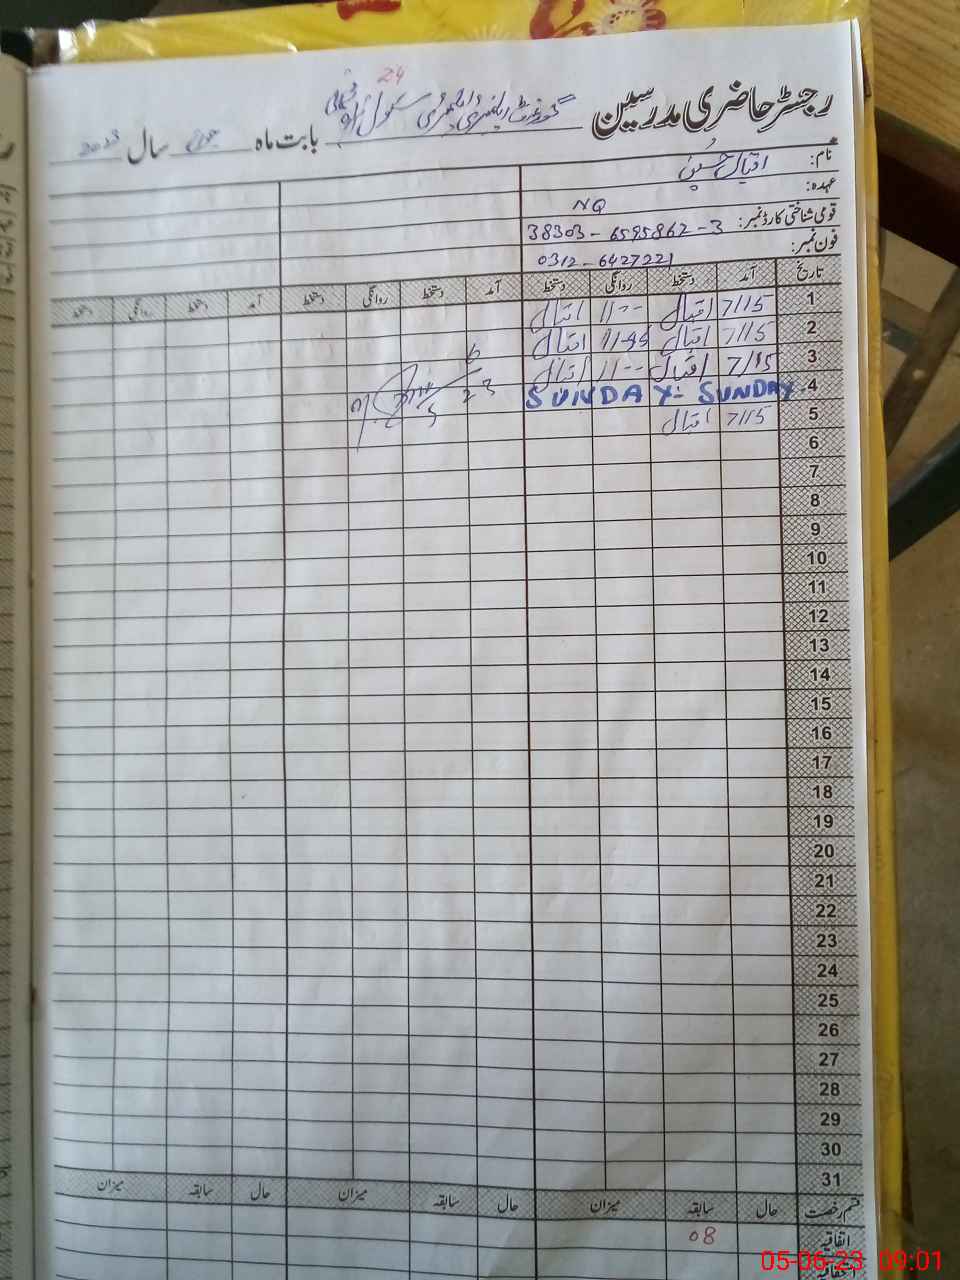 24
رجسٹر حاضری مدرسین گورنمنٹ ایلیمنٹری سکول بابت ماہ جون سال 2023
نام: اقبال حسین
عہدہ: NQ
قومی شناختی کارڈ نمبر: 38303-6595862-3
فون نمبر: 0312-6427221
تاریخ آمد دستخط روانگی دستخط آمد دستخط روانگی دستخط آمد دستخط روانگی دستخط
1 7/15 اقبال 11-- اقبال
2 7/15 اقبال 11-45 اقبال
3 7/15 اقبال 11-- اقبال
4 SUNDAY- SUNDAY
5 7/15 اقبال
6
7
8
9
10
11
12
13
14
15
16
17
18
19
20
21
22
23
24
25
26
27
28
29
30
31
قسم رخصت حال سابقہ میزان حال سابقہ میزان حال سابقہ میزان
اتفاقیہ 08
05-06-23 09:01